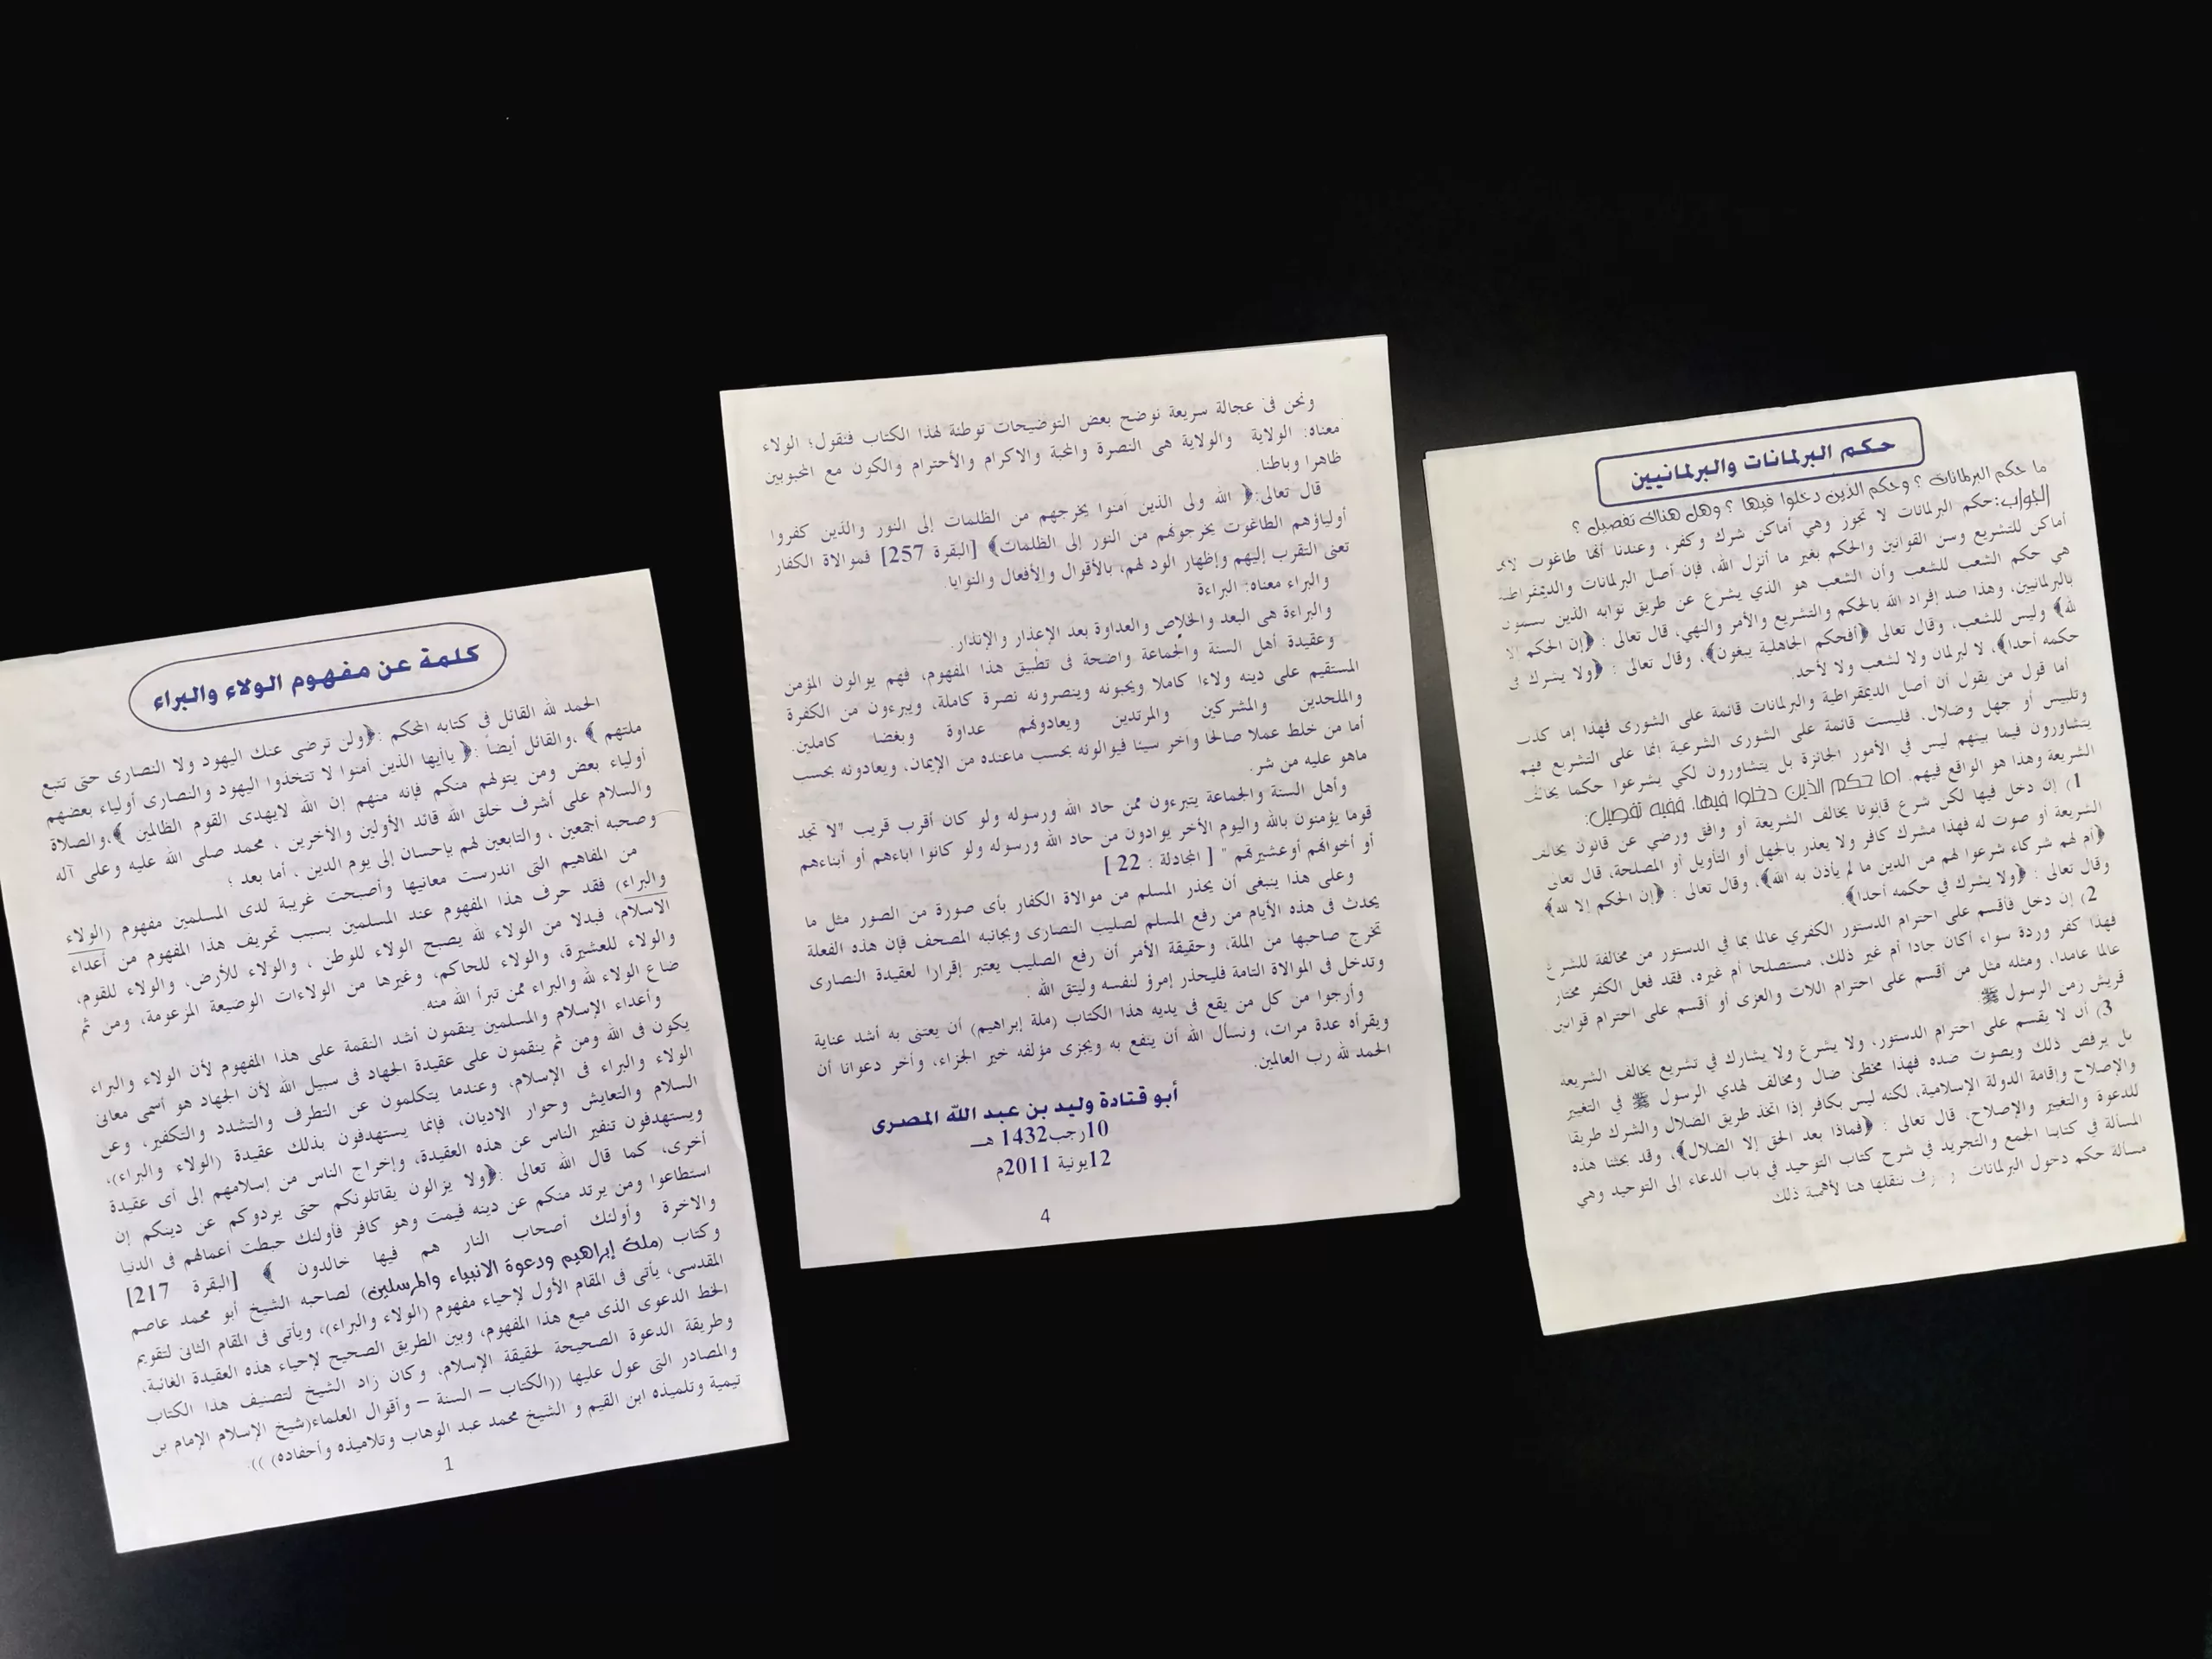 كلمة عن مفهوم الولاء والبراء
الحمد لله القائل في كتابه المحكم :﴿ولن ترضى عنك اليهود ولا النصارى حتى تتبع
ملتهم ﴾ ،والقائل أيضاً :﴿ ياأيها الذين أمنوا لا تتخذوا اليهود والنصارى أولياء بعضهم
أولياء بعض ومن يتولهم منكم فإنه منهم إن الله لايهدى القوم الظالمين ﴾،والصلاة
والسلام على أشرف خلق الله قائد الأولين والأخرين ، محمد صلى الله عليه وعلى آله
وصحبه أجمعين ، والتابعين لهم بإحسان إلى يوم الدين ، أما بعد ؛
من المفاهيم التى اندرست معانيها وأصبحت غريبة لدى المسلمين مفهوم (الولاء
والبراء) فقد حرف هذا المفهوم عند المسلمين بسبب تحريف هذا المفهوم من أعداء
الاسلام، فبدلا من الولاء لله يصبح الولاء للوطن ، والولاء للأرض، والولاء للقوم،
والولاء للعشيرة، والولاء للحاكم، وغيرها من الولاءات الوضيعة المزعومة، ومن ثم
ضاع الولاء لله والبراء ممن تبرأ الله منه.
وأعداء الإسلام والمسلمين ينقمون أشد النقمة على هذا المفهوم لأن الولاء والبراء
يكون فى الله ومن ثم ينقمون على عقيدة الجهاد فى سبيل الله لأن الجهاد هو أسمى معانى
الولاء والبراء فى الإسلام، وعندما يتكلمون عن التطرف والتشدد والتكفير، وعن
السلام والتعايش وحوار الاديان، فإنما يستهدفون بذلك عقيدة (الولاء والبراء)،
ويستهدفون تنفير الناس عن هذه العقيدة، وإخراج الناس من إسلامهم إلى أى عقيدة
أخرى، كما قال الله تعالى :﴿ولا يزالون يقاتلونكم حتى يردوكم عن دينكم إن
استطاعوا ومن يرتد منكم عن دينه فيمت وهو كافر فأولئك حبطت أعمالهم فى الدنيا
والاخرة وأولئك أصحاب النار هم فيها خالدون ﴾ [البقرة 217]
وكتاب (ملة إبراهيم ودعوة الانبياء والمرسلين) لصاحبه الشيخ أبو محمد عاصم
المقدسى، يأتى فى المقام الأول لإحياء مفهوم (الولاء والبراء)، ويأتى فى المقام الثانى لتقويم
الخط الدعوى الذى ميع هذا المفهوم، وبين الطريق الصحيح لإحياء هذه العقيدة الغائبة،
وطريقة الدعوة الصحيحة لحقيقة الإسلام، وكان زاد الشيخ لتصنيف هذا الكتاب
والمصادر التى عول عليها ((الكتاب – السنة – وأقوال العلماء(شيخ الإسلام الإمام بن
تيمية وتلميذه ابن القيم و الشيخ محمد عبد الوهاب وتلاميذه وأحفاده) )).
1
ونحن فى عجالة سريعة نوضح بعض التوضيحات توطئة لهذا الكتاب فنقول؛ الولاء
معناه: الولاية والولاية هى النصرة والمحبة والاكرام والأحترام والكون مع المحبوبين
ظاهرا وباطنا.
قال تعالى:﴿ الله ولى الذين آمنوا يخرجهم من الظلمات إلى النور والذين كفروا
أولياؤهم الطاغوت يخرجونهم من النور إلى الظلمات﴾ [البقرة 257] فموالاة الكفار
تعنى التقرب إليهم وإظهار الود لهم، بالأقوال والأفعال والنوايا.
والبراء معناه: البراءة
والبراءة هى البعد والخلاص والعداوة بعد الإعذار والإنذار.
وعقيدة أهل السنة والجماعة واضحة فى تطبيق هذا المفهوم، فهم يوالون المؤمن
المستقيم على دينه ولاءا كاملا ويحبونه وينصرونه نصرة كاملة، ويبرءون من الكفرة
والملحدين والمشركين والمرتدين ويعادونهم عداوة وبغضا كاملين.
أما من خلط عملا صالحا وأخر سيئا فيوالونه بحسب ماعنده من الإيمان، ويعادونه بحسب
ماهو عليه من شر.
وأهل السنة والجماعة يتبرءون ممن حاد الله ورسوله ولو كان أقرب قريب "لا تجد
قوما يؤمنون بالله واليوم الأخر يوادون من حاد الله ورسوله ولو كانوا اباءهم أو أبناءهم
أو أخوانهم أوعشيرتهم " [ المجادلة : 22 ]
وعلى هذا ينبغى أن يحذر المسلم من موالاة الكفار بأى صورة من الصور مثل ما
يحدث فى هذه الأيام من رفع المسلم لصليب النصارى وبجانبه المصحف فإن هذه الفعلة
تخرج صاحبها من الملة، وحقيقة الأمر أن رفع الصليب يعتبر إقرارا لعقيدة النصارى
وتدخل فى الموالاة التامة فليحذر إمرؤ لنفسه وليتق الله .
وأرجوا من كل من يقع فى يديه هذا الكتاب (ملة إبراهيم) أن يعتنى به أشد عناية
ويقرأه عدة مرات، ونسأل الله أن ينفع به ويجزى مؤلفه خير الجزاء، وأخر دعوانا أن
الحمد لله رب العالمين.
أبو قتادة وليد بن عبد الله المصرى
10رجب1432 هـ
12يونية 2011م
4
حكم البرلمانات والبرلمانيين
ما حكم البرلمانات ؟ وحكم الذين دخلوا فيها ؟ وهل هناك تفصيل ؟
الجواب:حكم البرلمانات لا تجوز وهي أماكن شرك وكفر، وعندنا أنها طاغوت لأنها
أماكن للتشريع وسن القوانين والحكم بغير ما أنزل الله، فإن أصل البرلمانات والديمقراطية
هي حكم الشعب للشعب وأن الشعب هو الذي يشرع عن طريق نوابه الذين يسمون
بالبرلمانيين، وهذا ضد إفراد الله بالحكم والتشريع والأمر والنهي، قال تعالى : ﴿إن الحكم إلا
لله﴾ وليس للشعب، وقال تعالى ﴿أفحكم الجاهلية يبغون﴾، وقال تعالى : ﴿ولا يشرك في
حكمه أحدا﴾، لا لبرلمان ولا لشعب ولا لأحد.
أما قول من يقول أن أصل الديمقراطية والبرلمانات قائمة على الشورى فهذا إما كذب
وتلبيس أو جهل وضلال، فليست قائمة على الشورى الشرعية إنما على التشريع فهم
يتشاورون فيما بينهم ليس في الأمور الجائزة بل يتشاورون لكي يشرعوا حكما يخالف
الشريعة وهذا هو الواقع فيهم. اما حكم الذين دخلوا فيها، ففيه تفصيل:
1) إن دخل فيها لكن شرع قانونا يخالف الشريعة أو وافق ورضي عن قانون يخالف
الشريعة أو صوت له فهذا مشرك كافر ولا يعذر بالجهل أو التأويل أو المصلحة، قال تعالى
﴿أم لهم شركاء شرعوا لهم من الدين ما لم يأذن به الله﴾، وقال تعالى : ﴿إن الحكم إلا لله﴾
وقال تعالى : ﴿ولا يشرك في حكمه أحدا﴾.
2) إن دخل فأقسم على احترام الدستور الكفري عالما بما في الدستور من مخالفة للشرع
فهذا كفر وردة سواء أكان جادا أم غير ذلك، مستصلحا أم غيره، فقد فعل الكفر مختار
عالما عامدا، ومثله مثل من أقسم على احترام اللات والعزى أو أقسم على احترام قوانين
قريش زمن الرسول ﷺ.
3) أن لا يقسم على احترام الدستور، ولا يشرع ولا يشارك في تشريع يخالف الشريعة
بل يرفض ذلك ويصوت ضده فهذا مخطئ ضال ومخالف لهدي الرسول ﷺ في التغيير
والإصلاح وإقامة الدولة الإسلامية، لكنه ليس بكافر إذا اتخذ طريق الضلال والشرك طريقا
للدعوة والتغيير والإصلاح، قال تعالى : ﴿فماذا بعد الحق إلا الضلال﴾، وقد بحثنا هذه
المسألة في كتابنا الجمع والتجريد في شرح كتاب التوحيد في باب الدعاء إلى التوحيد وهي
مسألة حكم دخول البرلمانات ننقلها هنا لأهمية ذلك